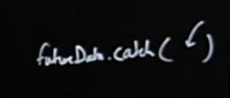 futureData.catch( )